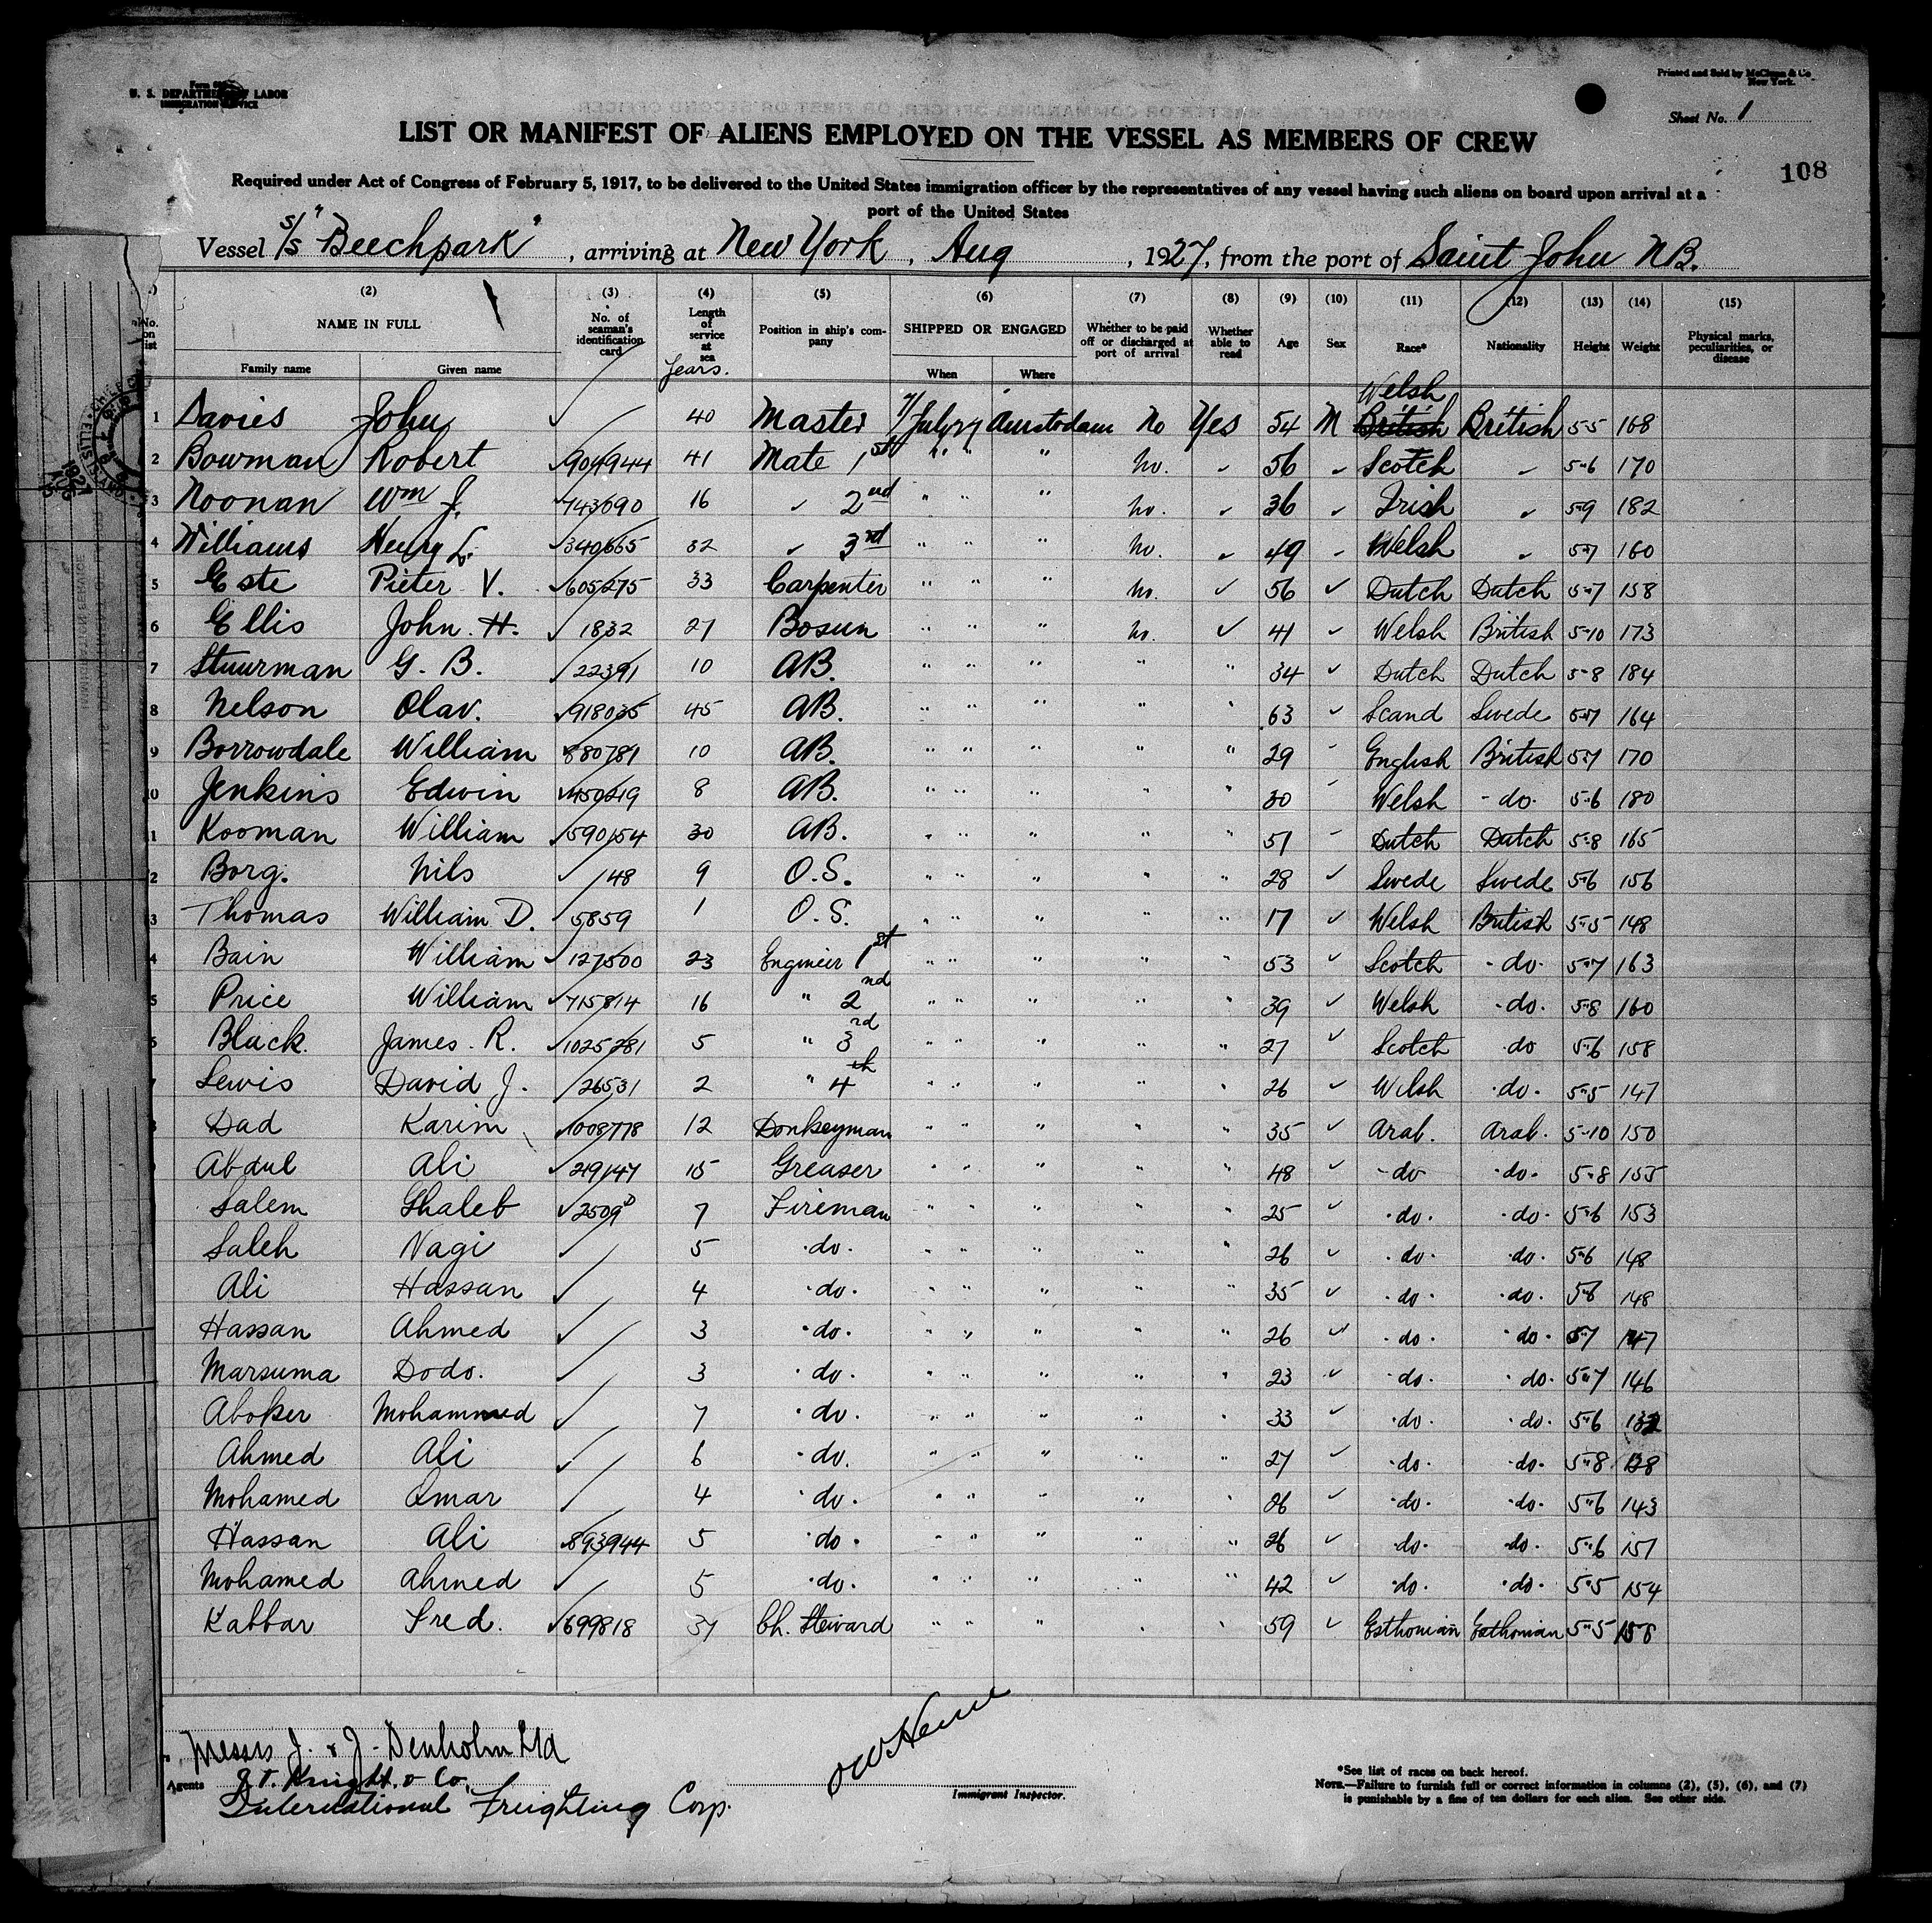 Form 680
U. S. DEPARTMENT OF LABOR
IMMIGRATION SERVICE
Printed and Sold by McClunn & Co
New York.
Sheet No. 1
LIST OR MANIFEST OF ALIENS EMPLOYED ON THE VESSEL AS MEMBERS OF CREW
108
Required under Act of Congress of February 5, 1917, to be delivered to the United States immigration officer by the representatives of any vessel having such aliens on board upon arrival at a
port of the United States
Vessel S/S "Beechpark", arriving at New York, Aug, 1927, from the port of Saint John N.B.
(2) (3) (4) (5) (6) (7) (8) (9) (10) (11) (12) (13) (14) (15)
No. on list NAME IN FULL No. of seaman's identification card Length of service at sea Years. Position in ship's company SHIPPED OR ENGAGED Whether to be paid off or discharged at port of arrival Whether able to read Age Sex Race* Nationality Height Weight Physical marks, peculiarities, or disease
Family name Given name When Where
1 Davies John ✓ 40 Master 7/July/27 Amsterdam No Yes 54 M British Welsh British 5-5 168
2 Bowman Robert ✓904944 41 Mate 1st " " " No. ✓ 56 ✓ Scotch ✓ 5-6 170
3 Noonan Wm J. ✓743690 16 ✓ 2nd " " " No. ✓ 36 ✓ Irish ✓ 5-9 182
4 Williams Henry L. ✓340665 32 ✓ 3rd " " " No. ✓ 49 ✓ Welsh ✓ 5-7 160
5 Este Pieter V. ✓605275 33 Carpenter " " " No. ✓ 56 ✓ Dutch Dutch 5-7 158
6 Ellis John H. ✓ 1832 27 Bosun " " " No. ✓ 41 ✓ Welsh British 5-10 173
7 Stuurman G. B. ✓ 22391 10 AB. " " " " " 34 ✓ Dutch Dutch 5-8 184
8 Nelson Olav. ✓918035 45 AB. " " " " " 63 ✓ Scand Swede 5-7 164
9 Borrowdale William ✓880781 10 AB. " " " " " 29 ✓ English British 5-7 170
10 Jenkins Edwin ✓450219 8 AB. " " " " " 30 ✓ Welsh - do - 5-6 180
11 Kooman William ✓590154 30 AB. " " " " " 51 ✓ Dutch Dutch 5-8 165
12 Borg. Nils ✓ 148 9 O.S. " " " " " 28 ✓ Swede Swede 5-6 156
13 Thomas William D. ✓ 5859 1 O.S. " " " " " 17 ✓ Welsh British 5-5 148
14 Bain William ✓127500 23 Engineer 1st " " " " " 53 ✓ Scotch - do - 5-7 163
15 Price William ✓715814 16 " 2nd " " " " " 39 ✓ Welsh - do - 5-8 160
16 Black James R. ✓1025281 5 " 3rd " " " " " 27 ✓ Scotch - do 5-6 158
17 Lewis David J. 26531 2 " 4th " " " " " 26 ✓ Welsh - do - 5-5 147
18 Dad Karim ✓1008778 12 Donkeyman " " " " " 35 ✓ Arab. Arab. 5-10 150
Abdul Ali ✓219147 15 Greaser " " " " " 48 ✓ - do - do - 5-8 155
Salem Ghaleb ✓2509 7 Fireman " " " " " 25 ✓ - do - - do - 5-6 153
Saleh Nagi ✓ 5 - do - " " " " " 26 ✓ - do - - do - 5-6 148
Ali Hassan ✓ 4 - do - " " " " " 35 ✓ - do - - do - 5-6 148
Hassan Ahmed ✓ 3 - do - " " " " " 26 ✓ - do - - do - 5-7 147
Marsuma Dodo. ✓ 3 - do - " " " " " 23 ✓ - do - - do - 5-7 146
Aboker Mohammed ✓ 7 - do - " " " " " 33 ✓ - do - - do - 5-6
Ahmed Ali ✓ 6 - do - " " " " " 27 ✓ - do - - do - 5-8 138
Mohamed Omar ✓ 4 - do - " " " " " 26 ✓ - do - - do - 5-6 143
Hassan Ali ✓893944 5 - do - " " " " " 26 ✓ - do - - do - 5-6 151
Mohamed Ahmed ✓ 5 - do - " " " " " 42 ✓ - do - - do - 5-5 154
Kabbar Fred. ✓699818 37 Ch. Steward " " " " " 59 ✓ Esthonian Esthonian 5-5 158
Messrs J. & J. Denholm Ltd
Agents J. T. Knight & Co.
International Freighting Corp.
Immigrant Inspector.
*See list of races on back hereof.
NOTE.—Failure to furnish full or correct information in columns (2), (5), (6), and (7)
is punishable by a fine of ten dollars for each alien. See other side.